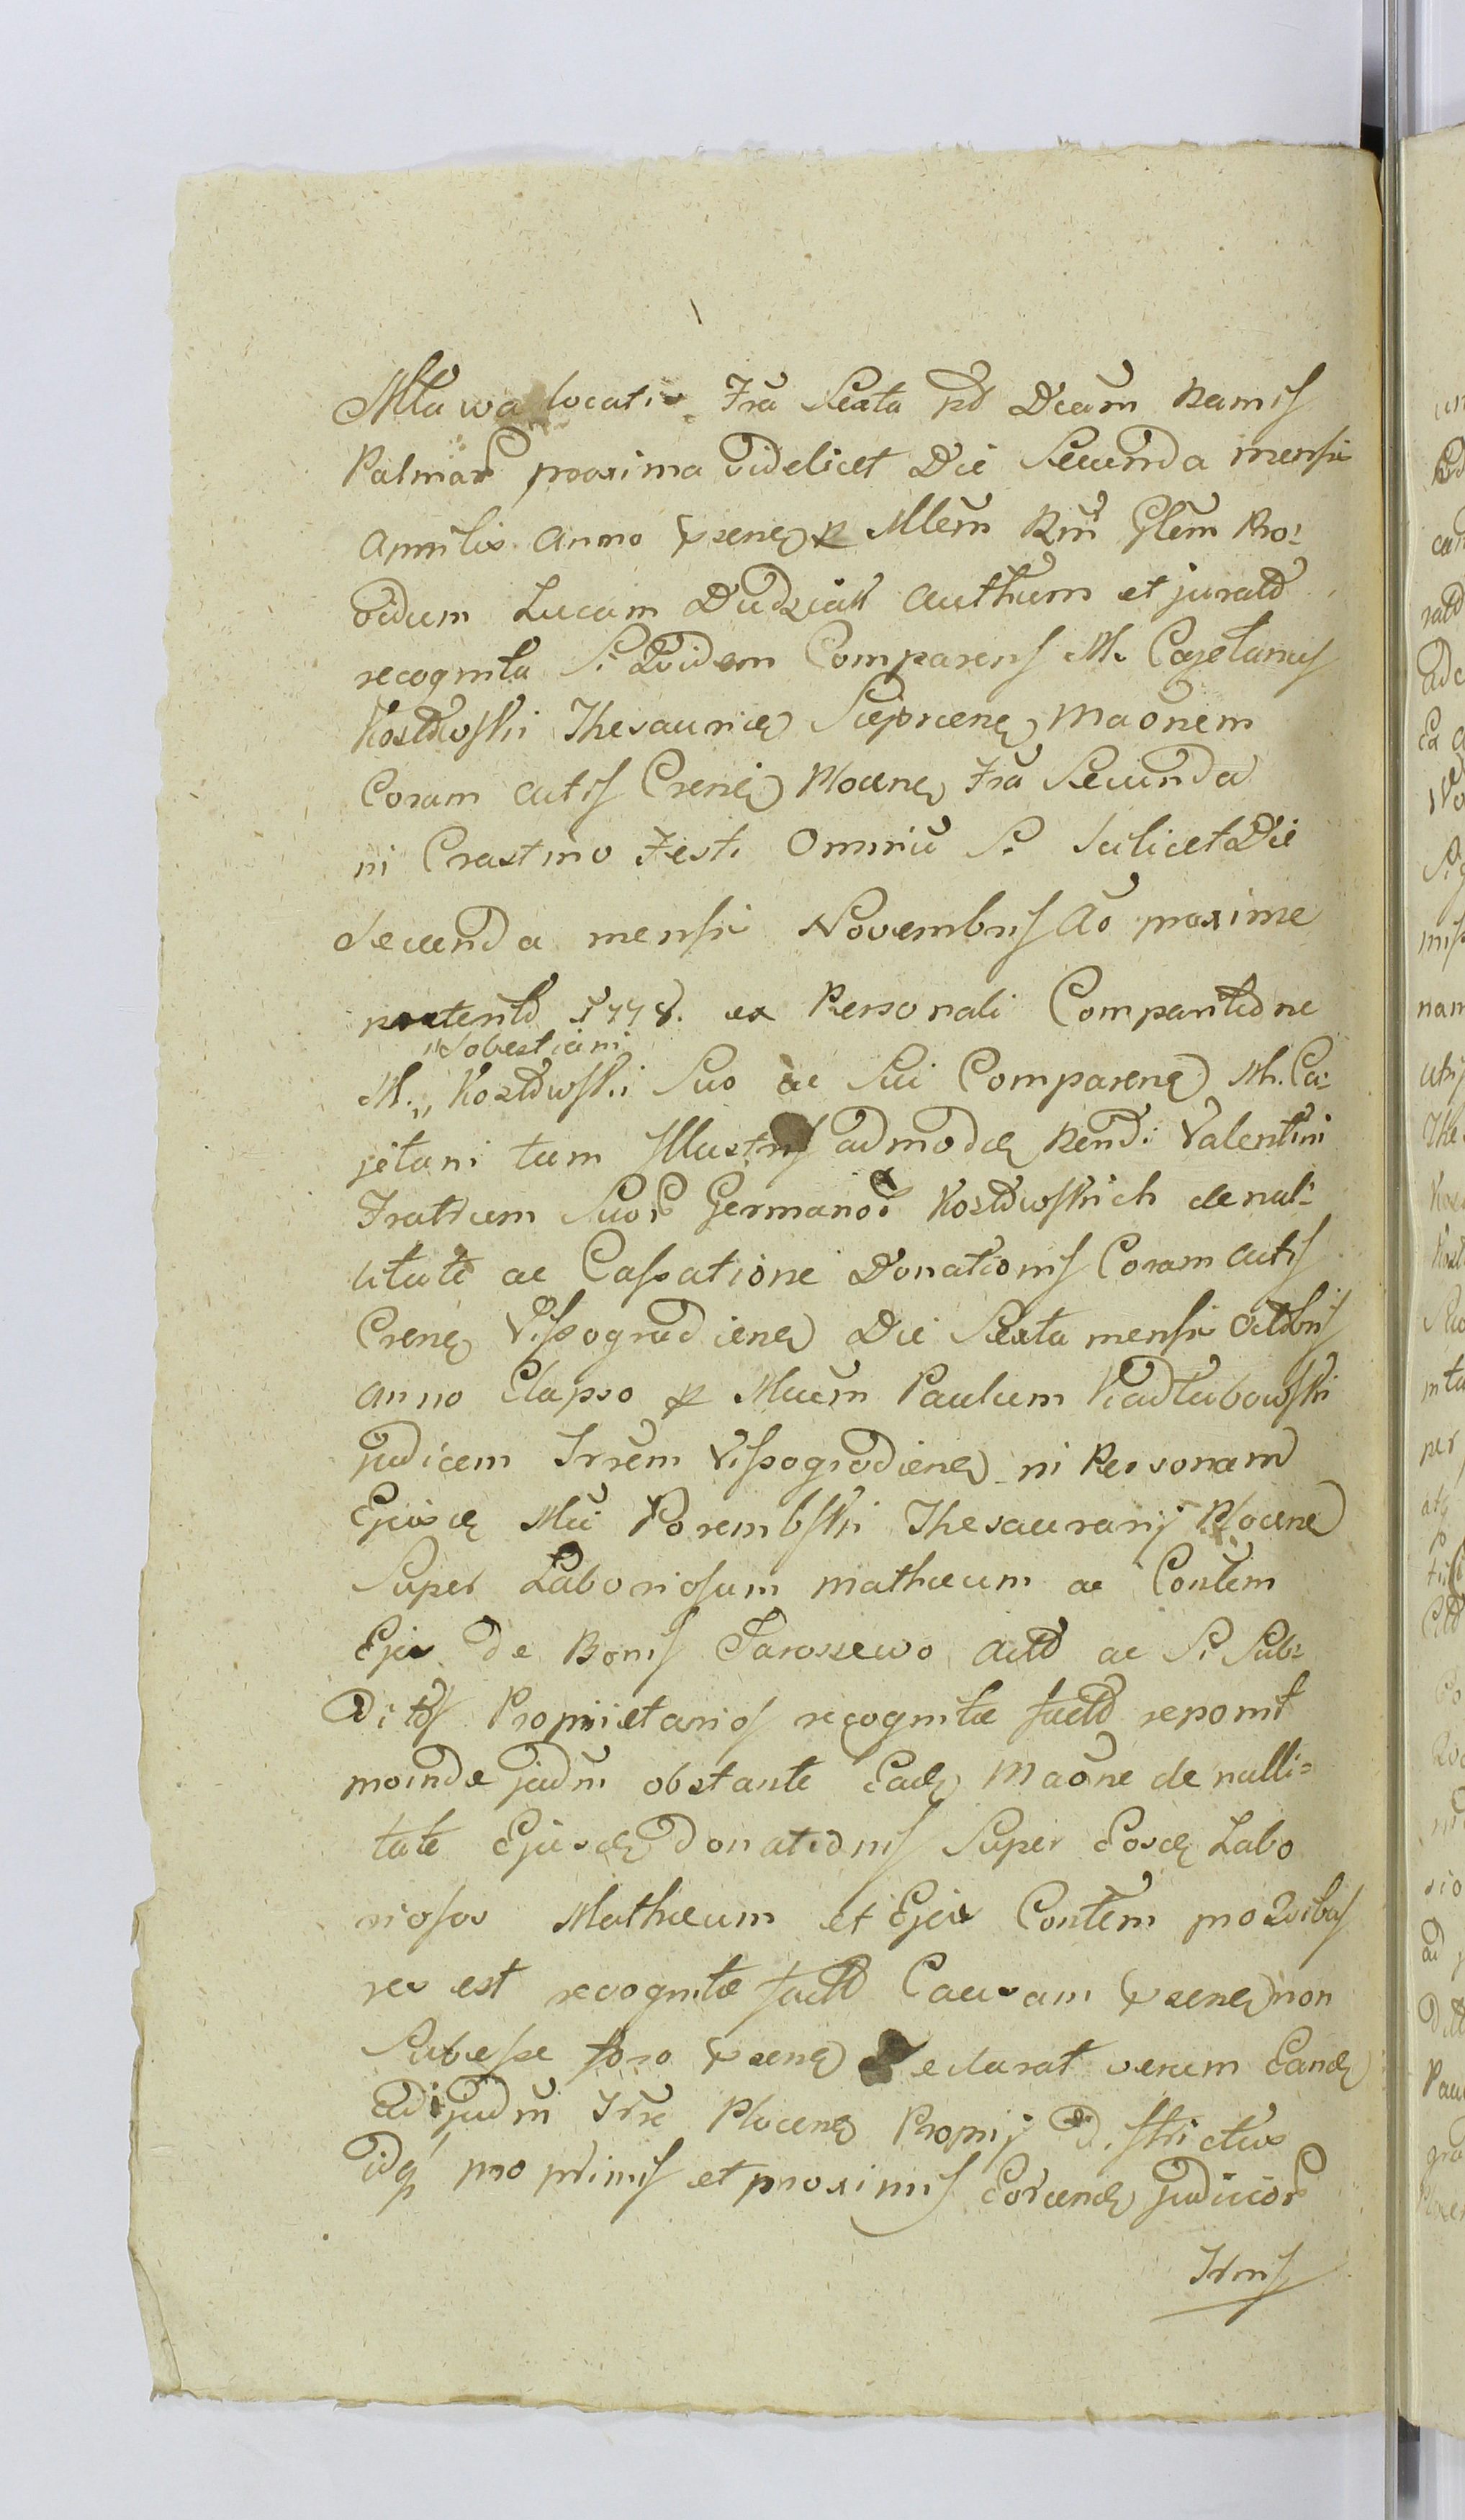 Mława locatis Fra Sexta pt Dcam Ramis
Palmar proxima videlicet Die Secunda mensis
Aprilis Anno prsene p Mlem Rm Glem Pro:
vidum Lucam Dudziak Authum et jurato
recognita Si Qvidem Comparens M. Cajetanus
Kozłowski Thesauric Sieprcene Maonem
Coram actis Crene Plocene Fra Secunda
in Crastino Festi Omniu S. Scilicet Die
Secunda mensis Novembris Ao proxime
praeterito 1778. ex Personali Comparitione
"Sobestiani
M. " Kozłowski Suo ac Sui Comparene M. Ca:
jetani tum Illustris admode Rendi Valentini
Fratrum Suor Germanor Kozłowskich de nul:
litate ac Cassatione Donationis Coram actis
Crene Vissogrodiene Die Sexta mensis Octbris
Anno Elapso p Mucm Paulum Kadłubowski
judicem Trrem Vissogrodiene in Personam
Ejusde Mci Porembski Thesaurarij Plocene
Super Laboriosum Mathaeum ac Contem
Ejus de Bonis Jaroszewo acto ac Si Sub:
ditos Proprietarios recognitae facto reponit
proinde judni obstante Eade Maone de nulli=
tate Ejusde donationis Super Eosde Labo
riosos Mathaeum et Ejus Contem pro Qvibus
res est recognitae facto Causam prsene non
Subesse foro prsene declarat verum Eande
Ad judni Trre Plocene Proprij Districtus
idq pro primis et proximis Eorunde judicior
Trris